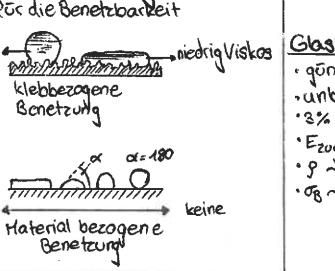 für die Benetzbarkeit
niedrig Viskos
klebbezogene
Benetzung
α α=180
keine
Material bezogene
Benetzung
Glas
· gün
· unb
· 3%
· Ezu
· ρ ~
· σB ~